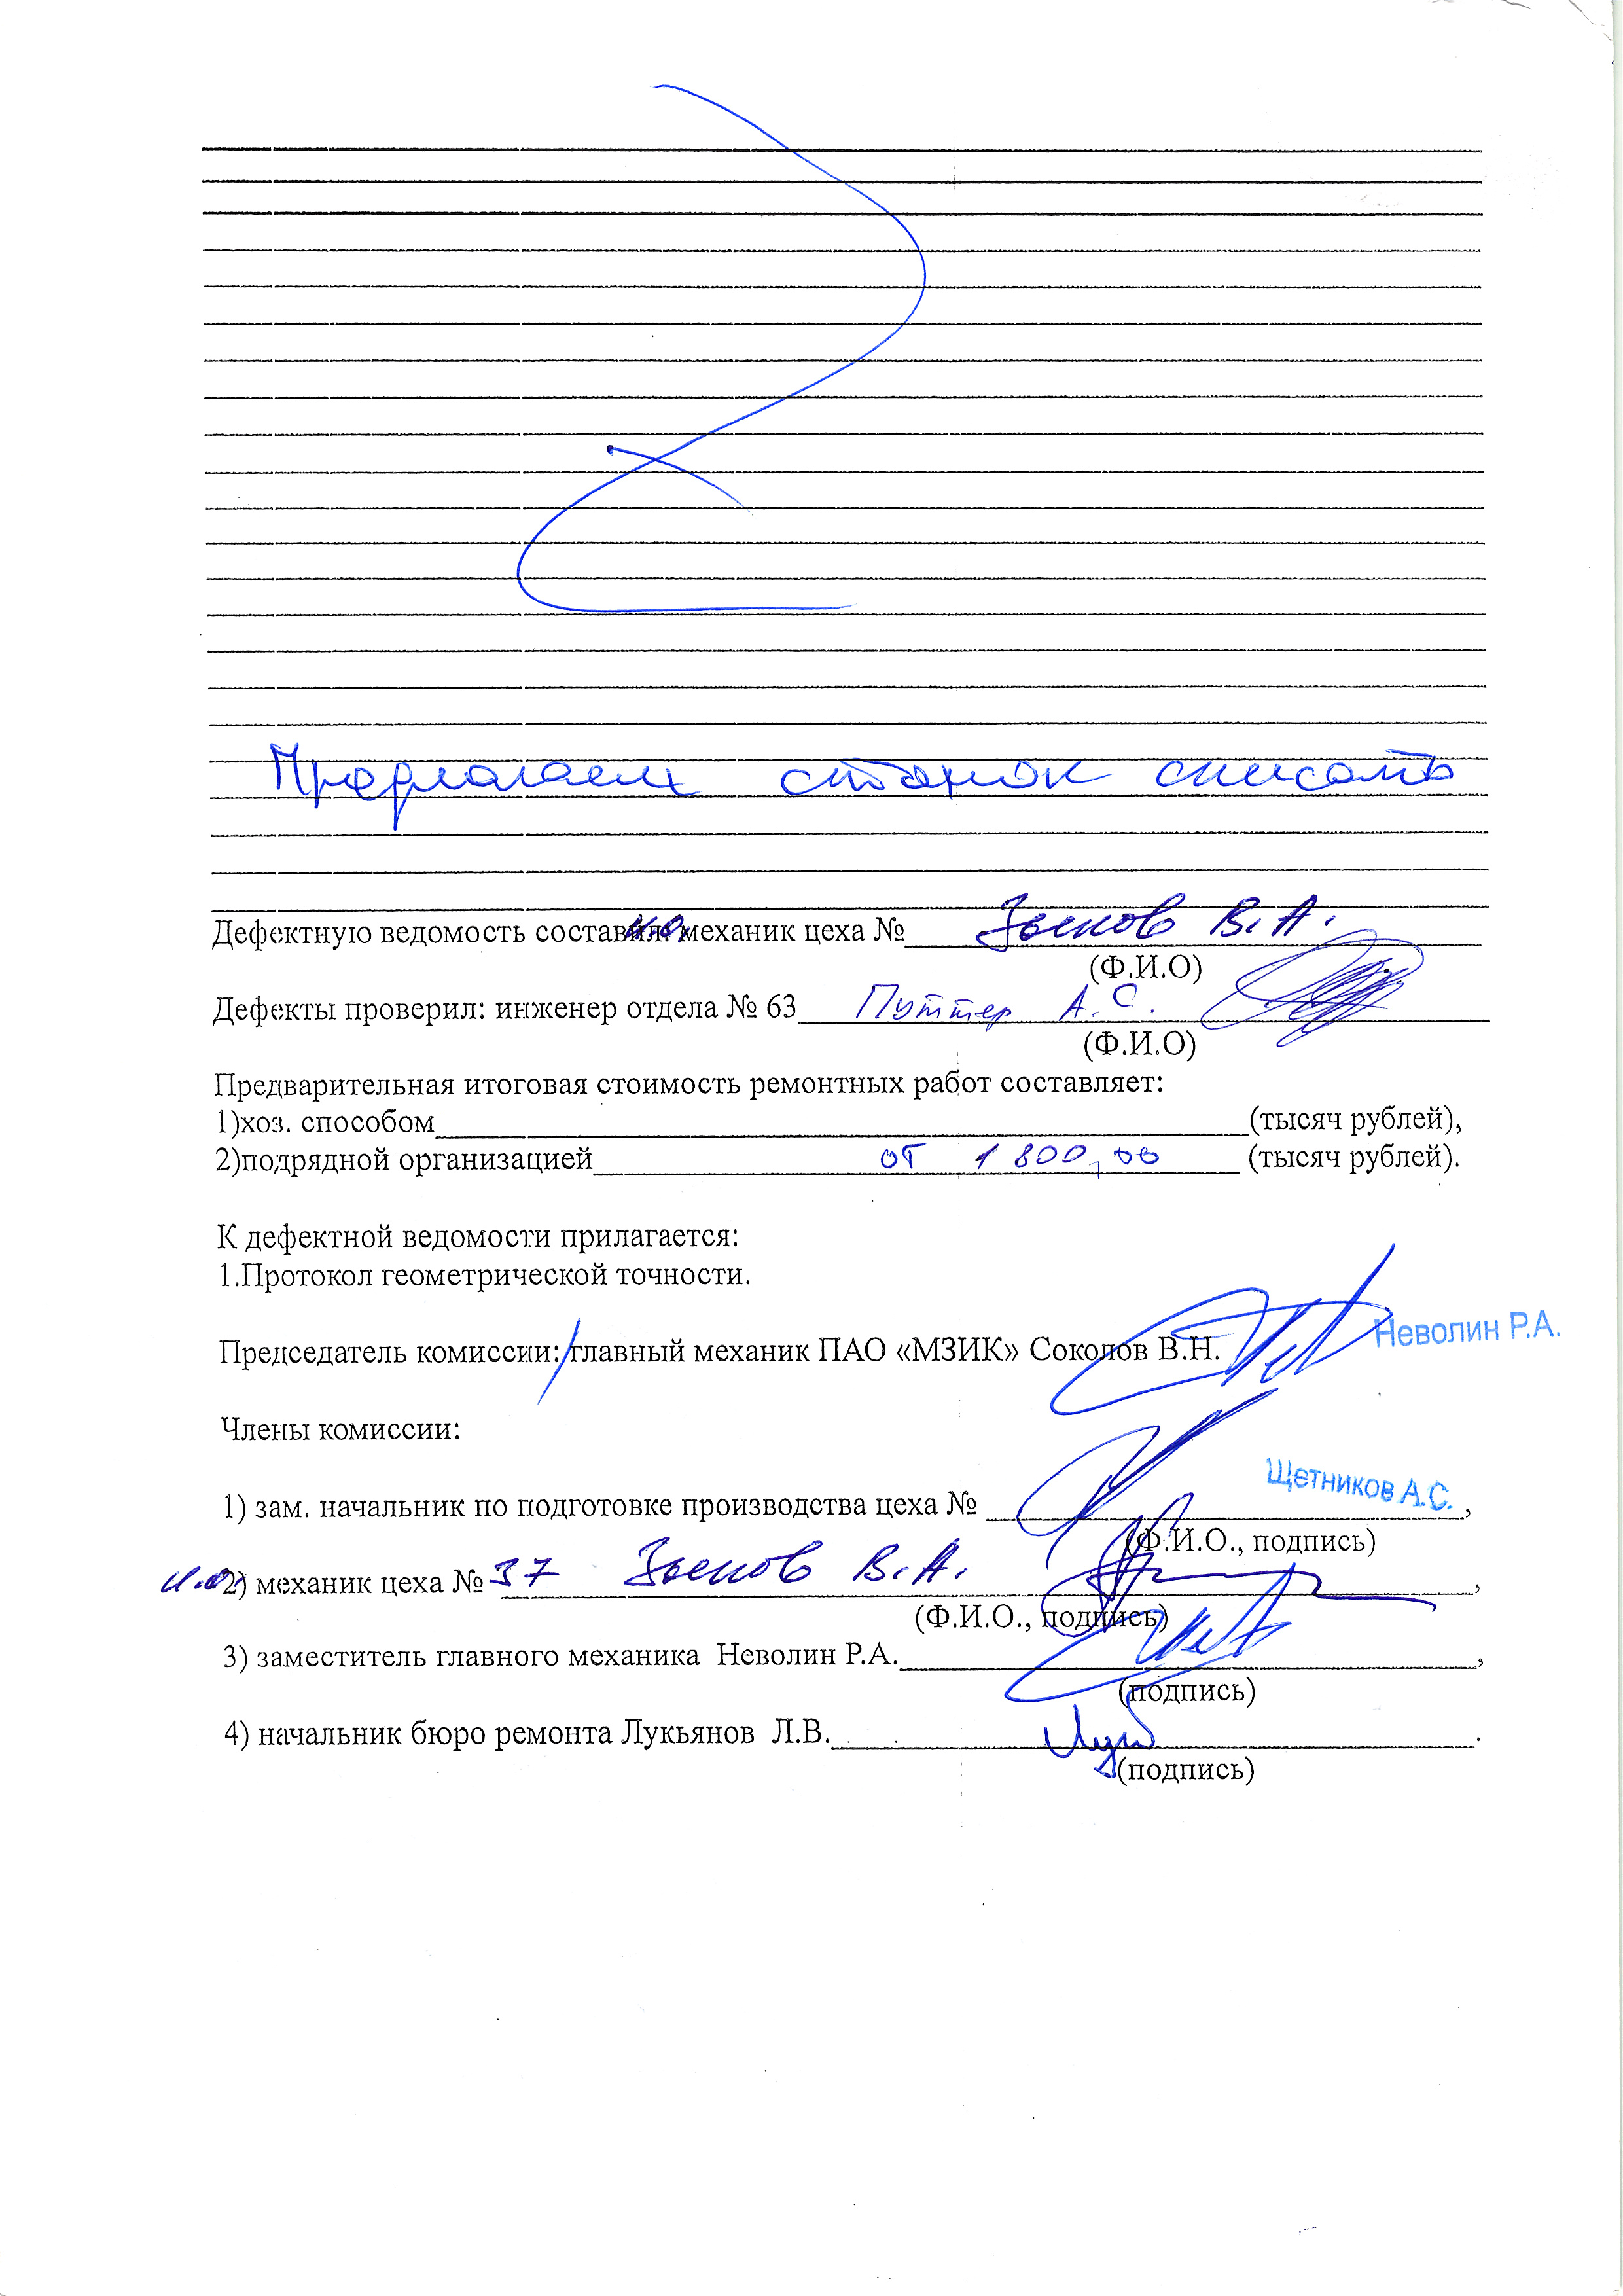 Предлагаем станок списать
Дефектную ведомость составил: и.о. механик цеха № В.А.
(Ф.И.О)
Дефекты проверил: инженер отдела № 63 Путтер А.С.
(Ф.И.О)
Предварительная итоговая стоимость ремонтных работ составляет:
1)хоз. способом (тысяч рублей),
2)подрядной организацией от 1 800,00 (тысяч рублей).
К дефектной ведомости прилагается:
1.Протокол геометрической точности.
Председатель комиссии: / главный механик ПАО «МЗИК» Соколов В.Н. Неволин Р.А.
Члены комиссии:
1) зам. начальник по подготовке производства цеха № Щетников А.С. ,
(Ф.И.О., подпись)
и.о. 2) механик цеха № 37 В.А. ,
(Ф.И.О., подпись)
3) заместитель главного механика Неволин Р.А. ,
(подпись)
4) начальник бюро ремонта Лукьянов Л.В. .
(подпись)